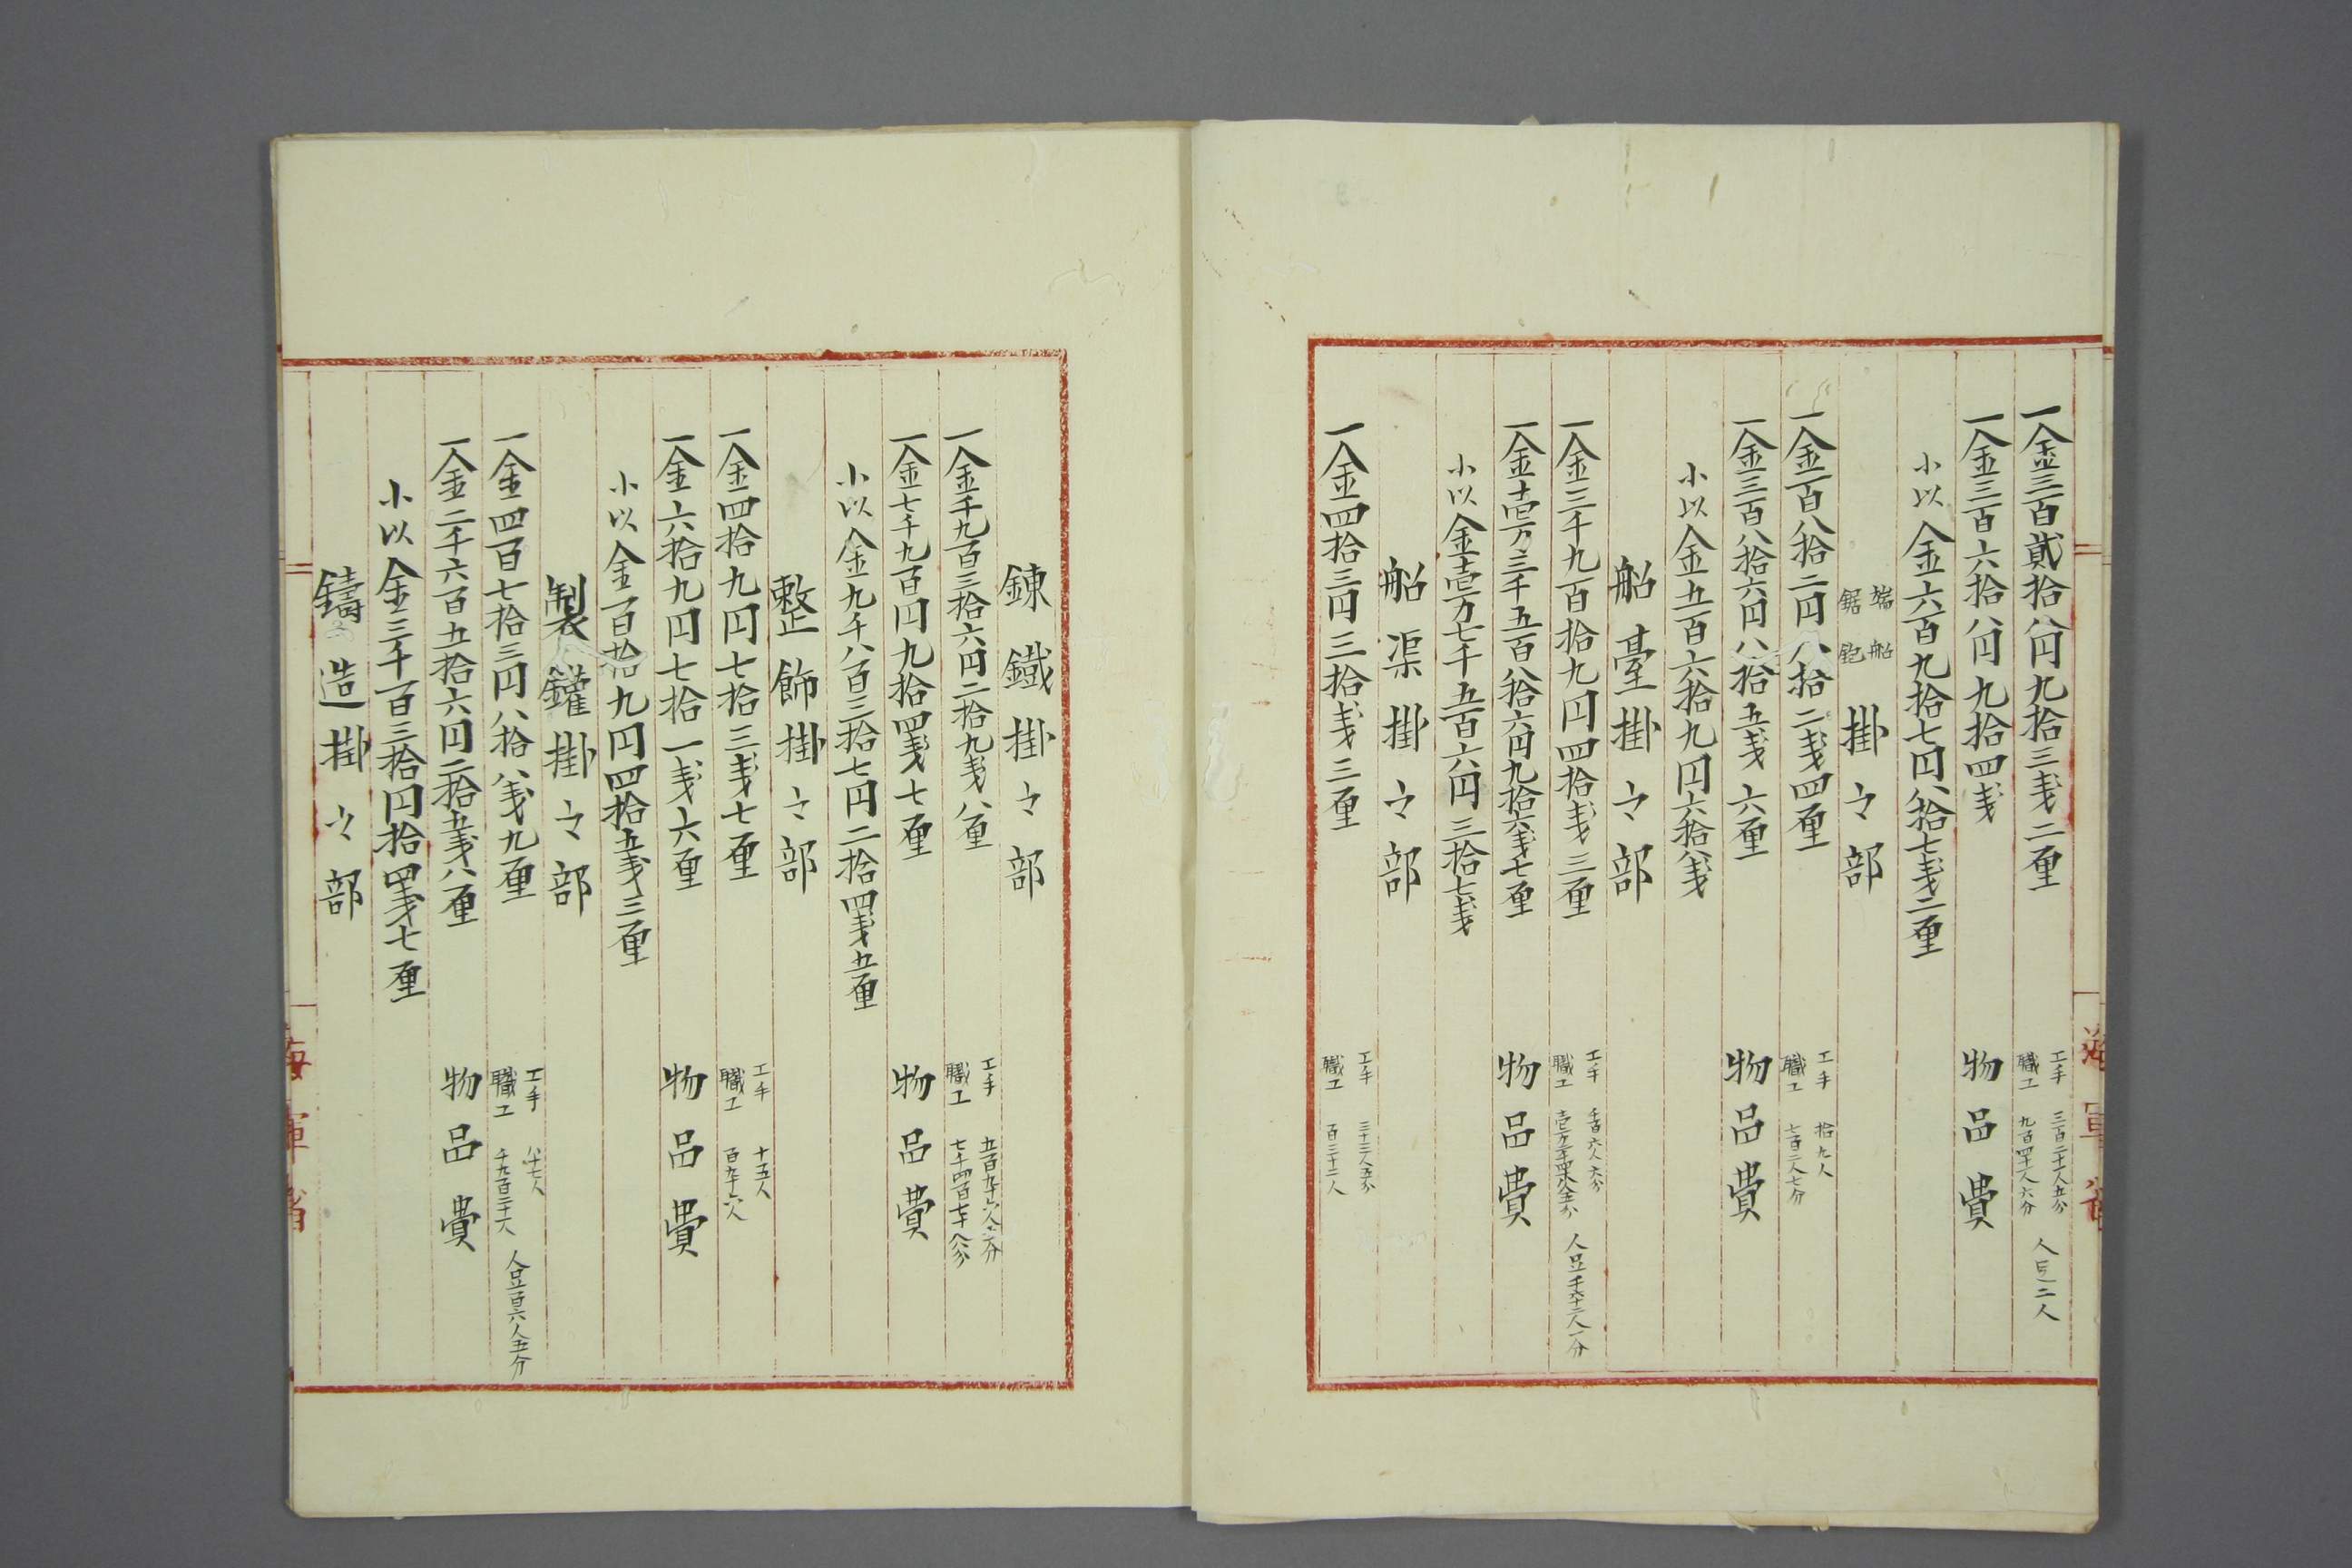 一金三百貳拾八円九拾三戋二厘 工手 三百二十八人五分 職工 九百四十八人六分 人足二人
一金三百六拾八円九拾四戋 物品費
小以金六百九拾七円八拾七戋二厘
端船 鋸鉋 掛之部
一金百八拾二円八拾二戋四厘 工手 拾九人 職工 七百二人七分
一金三百八拾六円八拾五戋六厘 物品費
小以金五百六拾九円六拾八戋
船臺掛之部
一金三千九百拾九円四拾戋三厘 工手 千百六人六分 職工
一金壱万三千五百八拾六円九拾六戋七厘 物品費
小以金壱万七千五百六円三拾七戋
船渠掛之部
一金四拾三円三拾戋三厘 工手 三十三人五分 職工 百三十二人
錬鐵掛之部
一金千九百三拾六円二拾九戋八厘 工手 職工
一金七千九百円九拾四戋七厘 物品費
小以金九千八百三拾七円二拾四戋五厘
整飾掛之部
一金四拾九円七拾三戋七厘 工手 十五人 職工 百九十六人
一金六拾九円七拾一戋六厘 物品費
小以金百拾九円四拾五戋三厘
製鑵掛之部
一金四百七拾三円八拾八戋九厘 工手 八十七人 職工 千九百三十八人 人足百六人五分
一金二千六百五拾六円二拾五戋八厘 物品費
小以金三千百三拾円拾四戋七厘
鑄造掛之部
海軍省